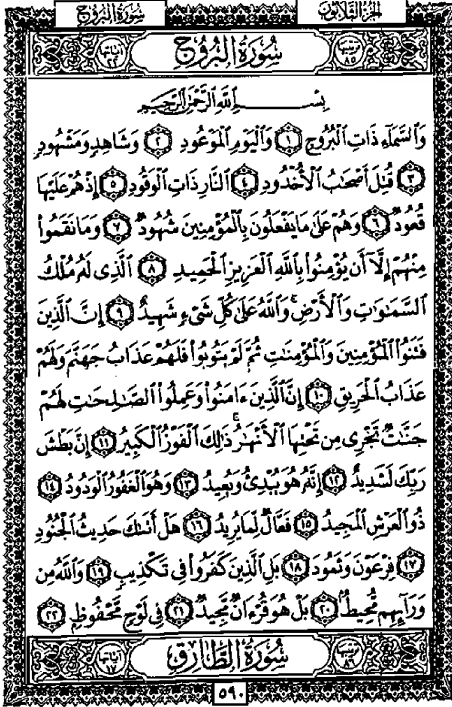 الجزء الثلاثون سورة البروج
ترتيبها ٨٥ سُورَةُ البُرُوج آياتها ٢٢
بِسْمِ اللَّهِ الرَّحْمَٰنِ الرَّحِيمِ
وَٱلسَّمَآءِ ذَاتِ ٱلْبُرُوجِ ١ وَٱلْيَوْمِ ٱلْمَوْعُودِ ٢ وَشَاهِدٍ وَمَشْهُودٍ
٣ قُتِلَ أَصْحَٰبُ ٱلْأُخْدُودِ ٤ ٱلنَّارِ ذَاتِ ٱلْوَقُودِ ٥ إِذْ هُمْ عَلَيْهَا
قُعُودٌ ٦ وَهُمْ عَلَىٰ مَا يَفْعَلُونَ بِٱلْمُؤْمِنِينَ شُهُودٌ ٧ وَمَا نَقَمُوا۟
مِنْهُمْ إِلَّآ أَن يُؤْمِنُوا۟ بِٱللَّهِ ٱلْعَزِيزِ ٱلْحَمِيدِ ٨ ٱلَّذِى لَهُۥ مُلْكُ
ٱلسَّمَٰوَٰتِ وَٱلْأَرْضِ ۚ وَٱللَّهُ عَلَىٰ كُلِّ شَىْءٍ شَهِيدٌ ٩ إِنَّ ٱلَّذِينَ
فَتَنُوا۟ ٱلْمُؤْمِنِينَ وَٱلْمُؤْمِنَٰتِ ثُمَّ لَمْ يَتُوبُوا۟ فَلَهُمْ عَذَابُ جَهَنَّمَ وَلَهُمْ
عَذَابُ ٱلْحَرِيقِ ١٠ إِنَّ ٱلَّذِينَ ءَامَنُوا۟ وَعَمِلُوا۟ ٱلصَّٰلِحَٰتِ لَهُمْ
جَنَّٰتٌ تَجْرِى مِن تَحْتِهَا ٱلْأَنْهَٰرُ ۚ ذَٰلِكَ ٱلْفَوْزُ ٱلْكَبِيرُ ١١ إِنَّ بَطْشَ
رَبِّكَ لَشَدِيدٌ ١٢ إِنَّهُۥ هُوَ يُبْدِئُ وَيُعِيدُ ١٣ وَهُوَ ٱلْغَفُورُ ٱلْوَدُودُ ١٤
ذُو ٱلْعَرْشِ ٱلْمَجِيدُ ١٥ فَعَّالٌ لِّمَا يُرِيدُ ١٦ هَلْ أَتَىٰكَ حَدِيثُ ٱلْجُنُودِ
١٧ فِرْعَوْنَ وَثَمُودَ ١٨ بَلِ ٱلَّذِينَ كَفَرُوا۟ فِى تَكْذِيبٍ ١٩ وَٱللَّهُ مِن
وَرَآئِهِم مُّحِيطٌۢ ٢٠ بَلْ هُوَ قُرْءَانٌ مَّجِيدٌ ٢١ فِى لَوْحٍ مَّحْفُوظٍۭ ٢٢
ترتيبها ٨٦ سُورَةُ الطَّارِق آياتها ١٧
٥٩٠